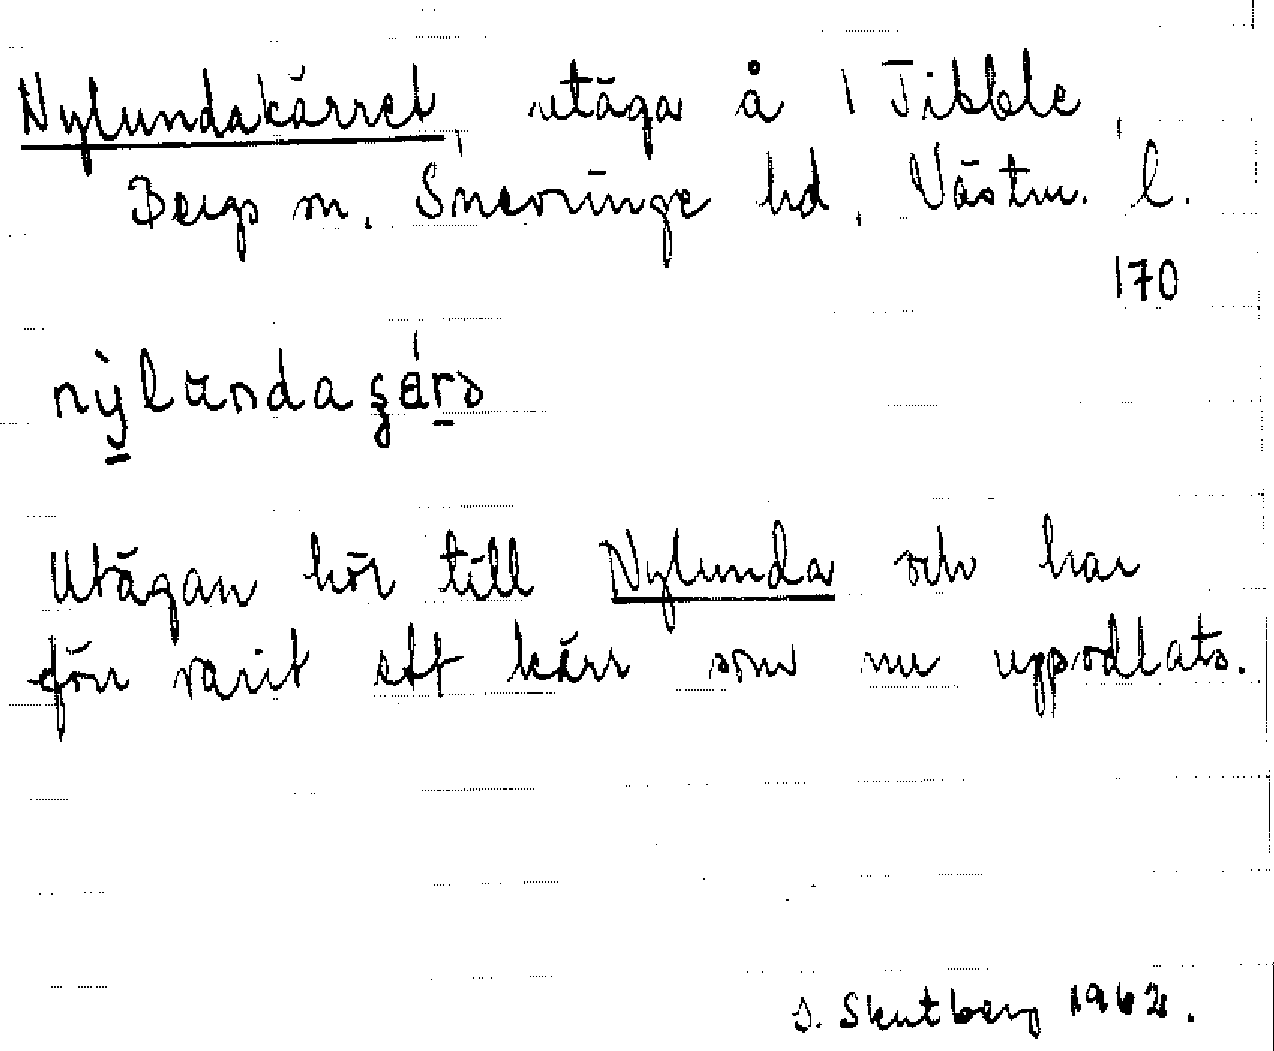 Nylundakärret, utäga å 1 Tibble,
Bergs sn. Snevringe hd, Västm. l.
170
Utägan hör till Nylunda och har
förr varit ett kärr som nu uppodlats.
S. Skutberg 1962.